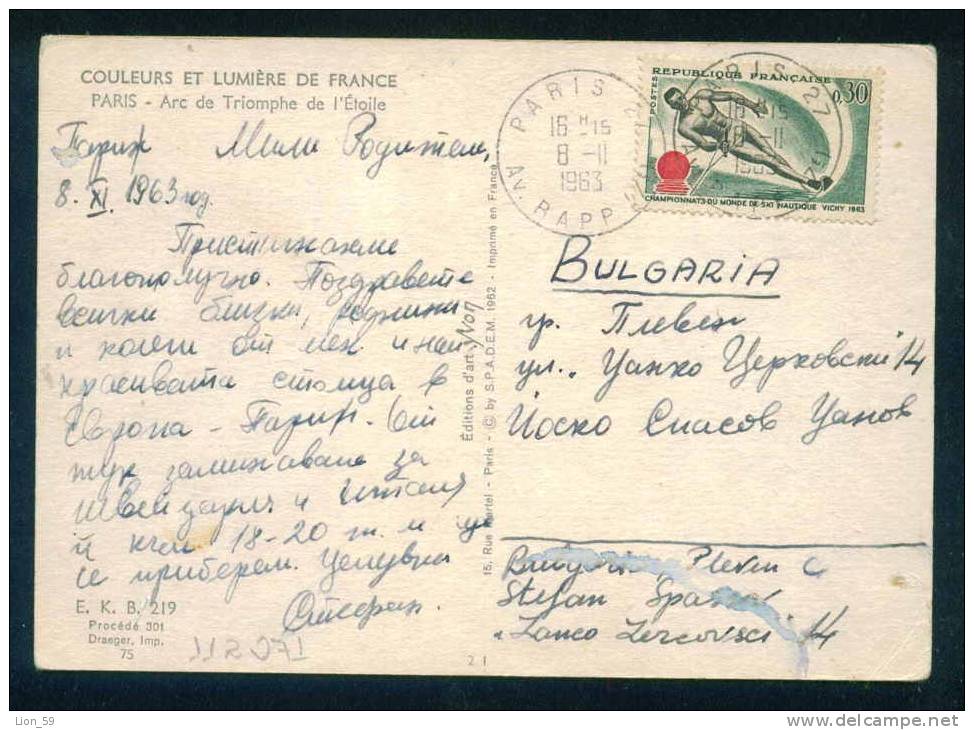 COULEURS ET LUMIÈRE DE FRANCE
PARIS - Arc de Triomphe de l'Étoile
Париж Мили Родители,
8. XI. 1963 год.
Пристигнахме
благополучно. Поздравете
всички близки, роднини
и колеги от мен и най
красивата столица в
Европа - Париж. От
тук заминаваме за
Швейцария и Италия
и към 18-20 т. м. ще
се приберем. Целувки
Стефан.
E. K. B. 219
Procédé 301
Draeger, Imp.
75
21
15, Rue Martel - Paris - © by S.P.A.D.E.M. 1962 - Imprimé en France
Éditions d'art Yvon
PARIS
16 H 15
8 - 11
1963
AV. RAPP
PARIS 27
16 H 15
8 - 11
1963
RÉPUBLIQUE FRANÇAISE
POSTES
0,30
CHAMPIONNATS DU MONDE DE SKI NAUTIQUE VICHY 1963
BULGARIA
гр. Плевен
ул. „Цанко Церковски" 14
Йоско Спасов Цанов
Plevin
Stefan
„Zanco Zercovsci" 14
Lion_59
http://www.delcampe.net